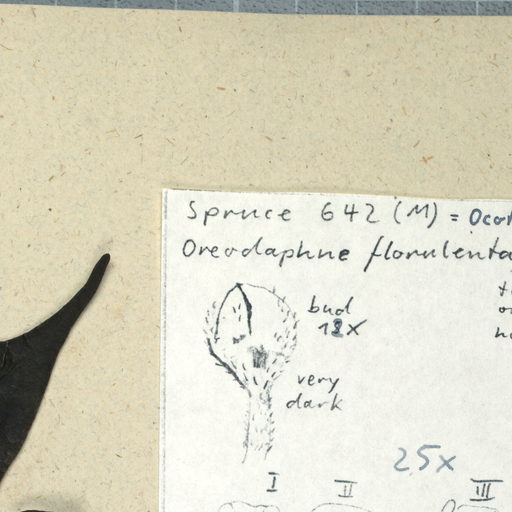 Spruce 642 (M) = Ocot
Oreodaphne florulenta
bud
12x
very
dark
25x
I II III